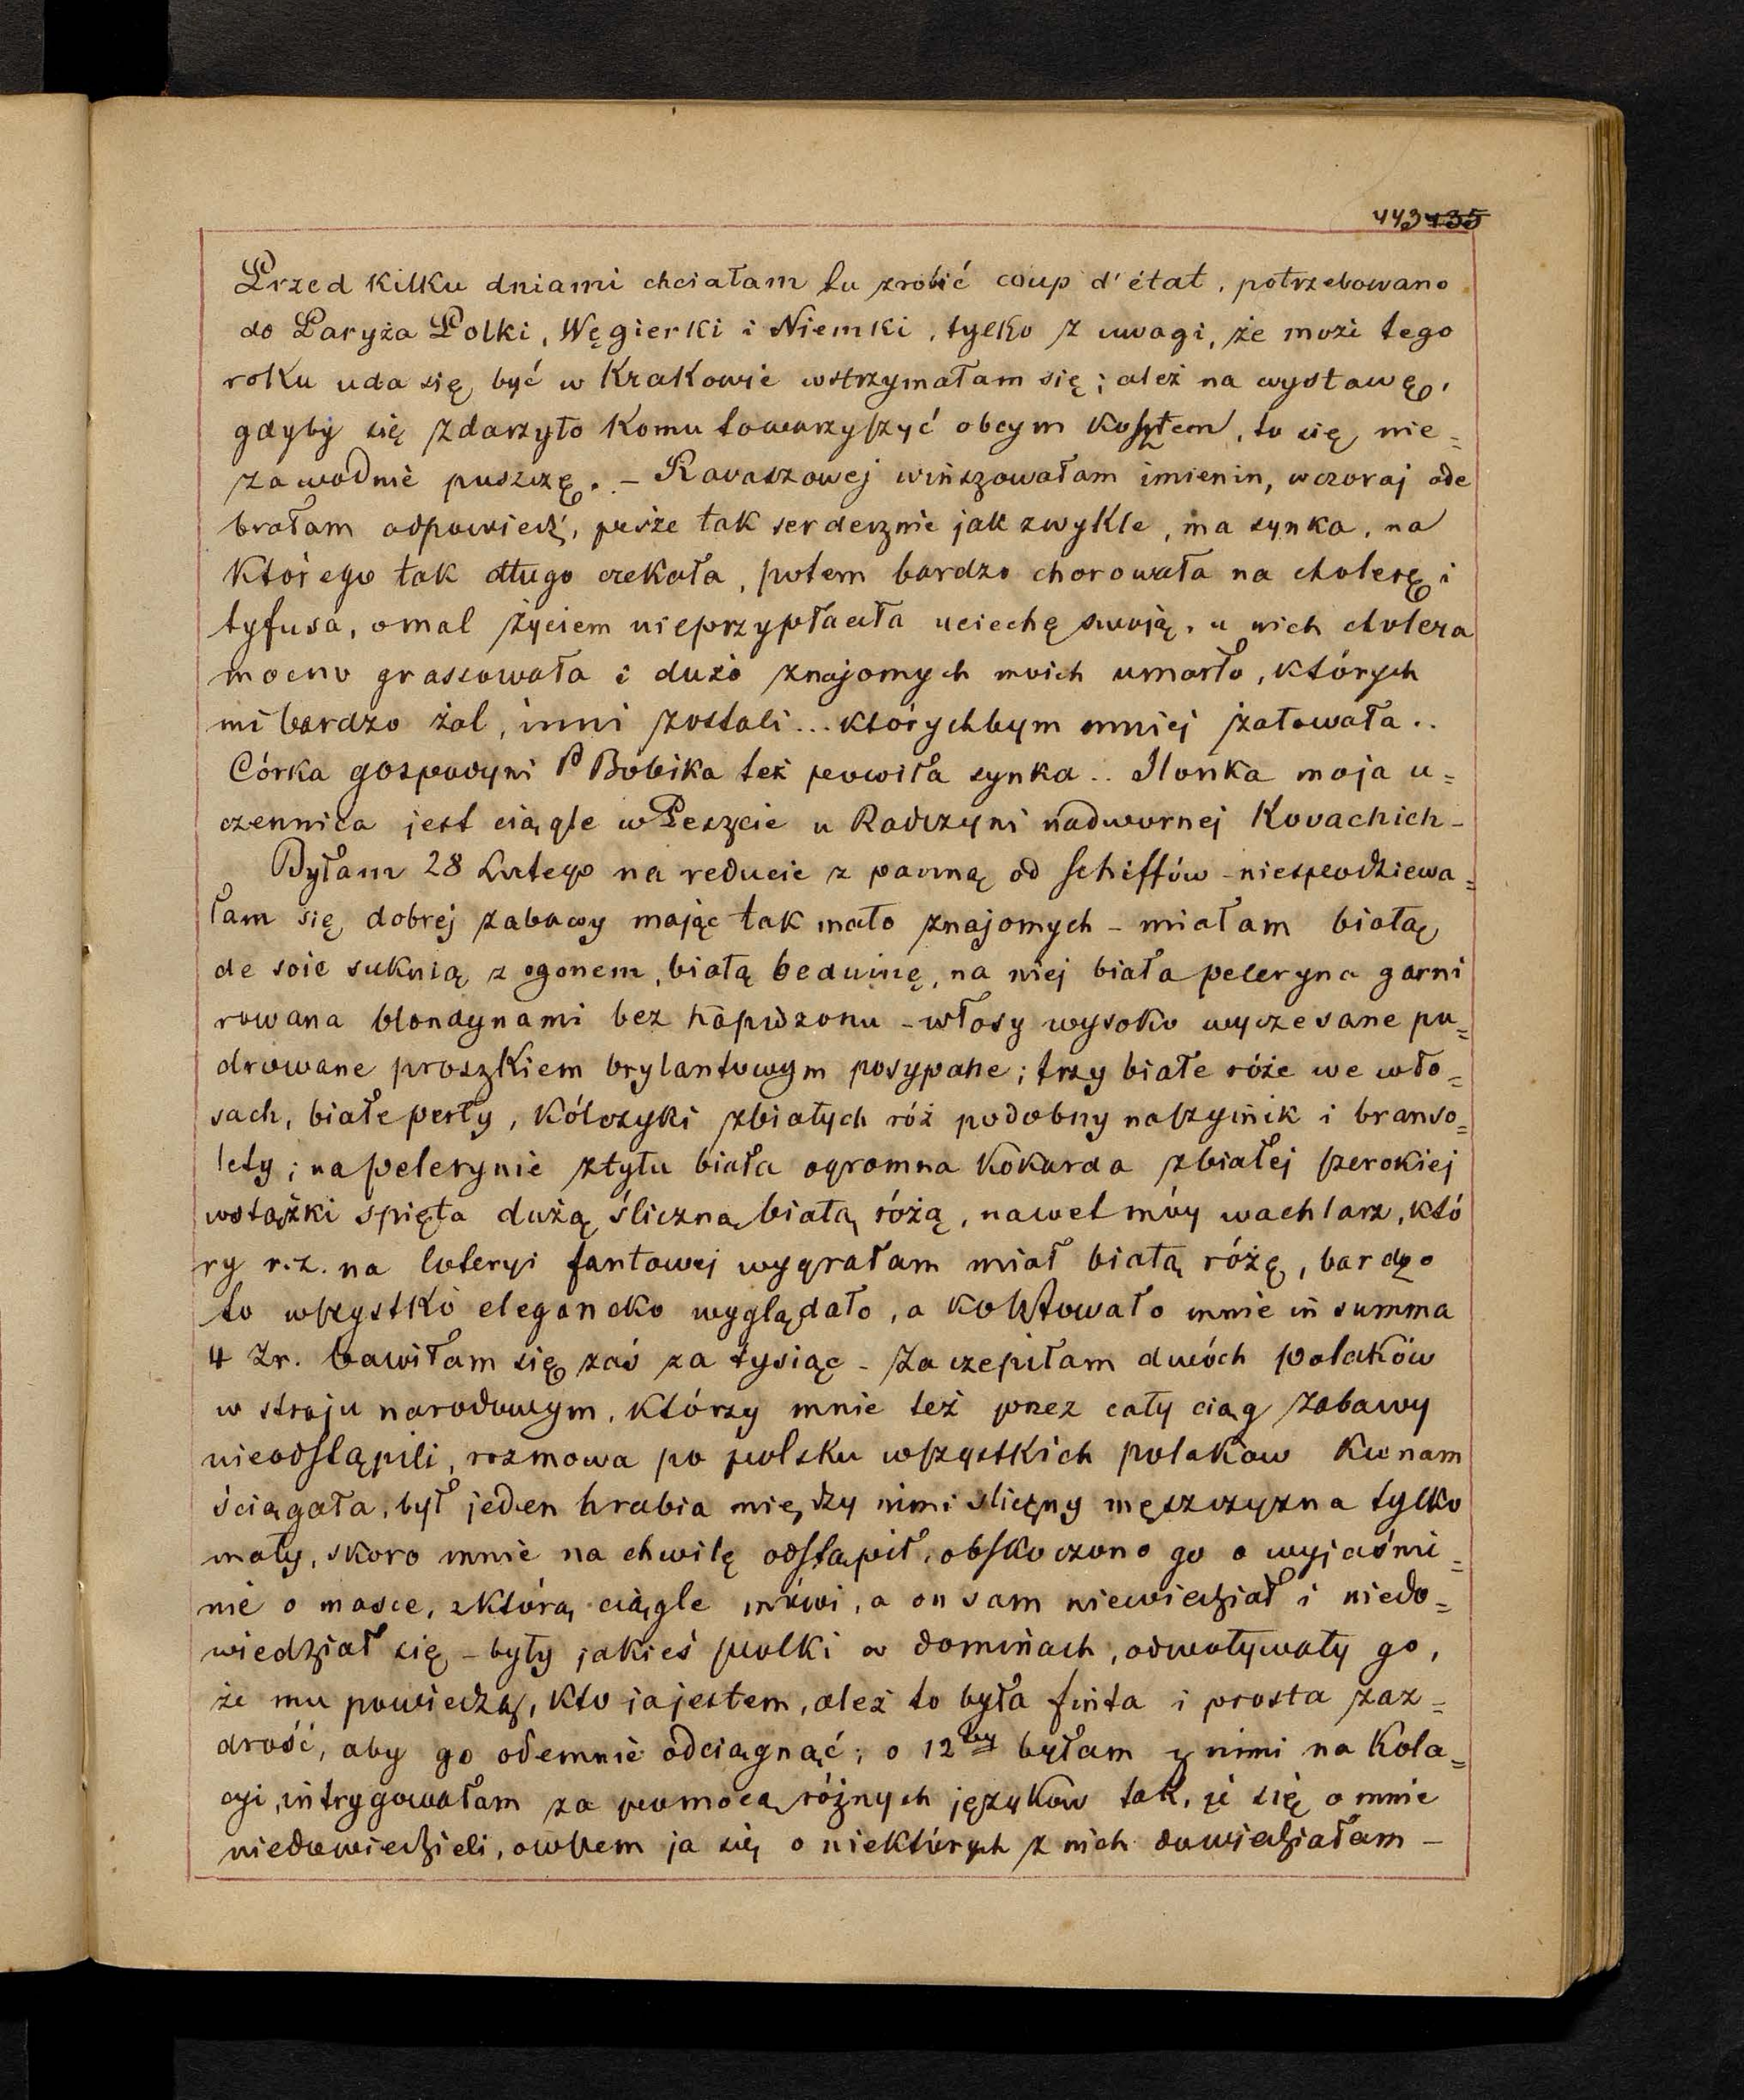 443 435
Przed kilku dniami chciałam tu zrobić coup d'état, potrzebowano
do Paryża Polki, Węgierki i Niemki, tylko z uwagi, że może tego
roku uda się być w Krakowie wstrzymałam się; ależ na wystawę,
gdyby się zdarzyło komu towarzyszyć obcym kosztem, to się nie=
zawodnie puszczę. – Ravaszowej winszowałam imienin, wczoraj ode
brałam odpowiedź, pisze tak serdecznie jak zwykle, ma synka, na
którego tak długo czekała, potem bardzo chorowała na cholerę i
tyfusa, omal życiem nieprzypłaciła uciechę swoją, u nich cholera
mocno grassowała i dużo znajomych moich umarło, których
mi bardzo żal, inni zostali... którychbym mniej żałowała..
Córka gospodyni P Bobika też powiła synka.. Ilonka moja u=
czennica jest ciągle w Peszcie u Radczyni nadwornej Kovachich –
Byłam 28 Lutego na reducie z panną od Schiffów – niespodziewa=
łam się dobrej zabawy mając tak mało znajomych – miałam białą
de soie suknią z ogonem, białą beduinę, na niej biała peleryna garni
rowana blondynami bez kapiszonu – włosy wysoko wyczesane pu=
drowane proszkiem brylantowym posypane; trzy białe róże we wło=
sach, białe perły, kólczyki z białych róż podobny naszyjnik i branso=
lety; na pelerynie z tyłu biała ogromna kokarda z białej szerokiej
wstążki spięta dużą śliczną białą różą, nawet mój wachlarz, któ
ry r.z. na loteryi fantowej wygrałam miał białą różę, bardzo
to wszystko elegancko wyglądało, a kosztowało mnie in summa
4 Zr. bawiłam się zaś za tysiąc – Zaczepiłam dwóch polaków
w stroju narodowym, którzy mnie też przez cały ciąg zabawy
nieodstąpili, rozmowa po polsku wszystkich polaków ku nam
ściągała, był jeden hrabia między nimi śliczny mężczyzna tylko
mały, skoro mnie na chwilę odstąpił, obskoczono go o wyjaśnie=
nie o masce, z którą ciągle mówi, a on sam niewiedział i niedo=
wiedział się – były jakieś polki w dominach, odwoływały go,
że mu powiedzą, kto ja jestem, ależ to była finta i prosta zaz=
drość, aby go odemnie odciągnąć; o 12tej byłam z nimi na kola=
cyi, intrygowałam za pomocą różnych języków tak, że się o mnie
niedowiedzieli, owszem ja się o niektórych z nich dowiedziałam –